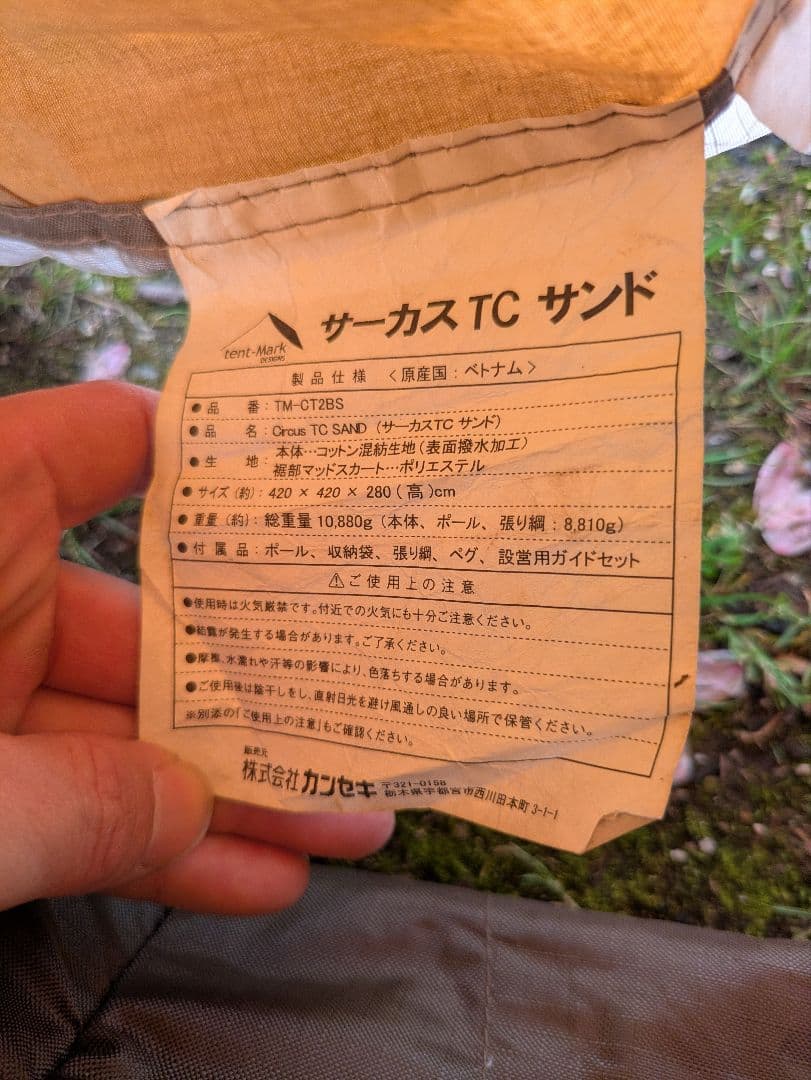 tent-Mark
DESIGNS
サーカス TC サンド
製品仕様 〈原産国：ベトナム〉
●品 番：TM-CT2BS
●品 名：Circus TC SAND（サーカスTC サンド）
●生 地：本体…コットン混紡生地（表面撥水加工）
裾部マッドスカート…ポリエステル
●サイズ（約）：420 × 420 × 280（高）cm
●重量（約）：総重量 10,880g（本体、ポール、張り綱：8,810g）
●付属品：ポール、収納袋、張り綱、ペグ、設営用ガイドセット
⚠ご使用上の注意
●使用時は火気厳禁です。付近での火気にも十分ご注意ください。
●結露が発生する場合があります。ご了承ください。
●摩擦、水濡れや汗等の影響により、色落ちする場合があります。
●ご使用後は陰干しをし、直射日光を避け風通しの良い場所で保管ください。
※別添の「ご使用上の注意」もご確認ください。
販売元
株式会社カンセキ 〒321-0158
栃木県宇都宮市西川田本町 3-1-1